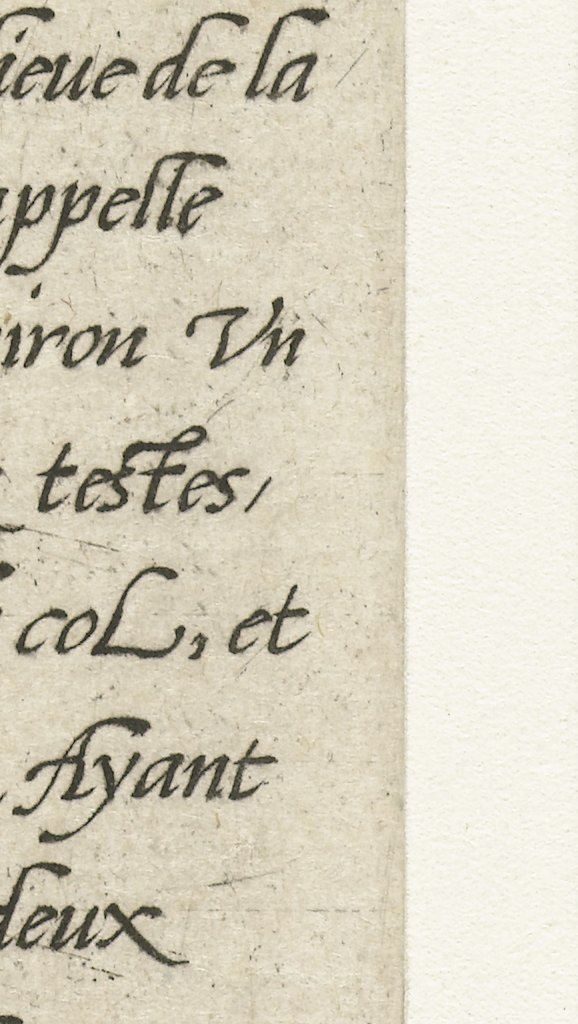 lieue de la
appelle
uiron Vn
testes,
col, et
Ayant
deux